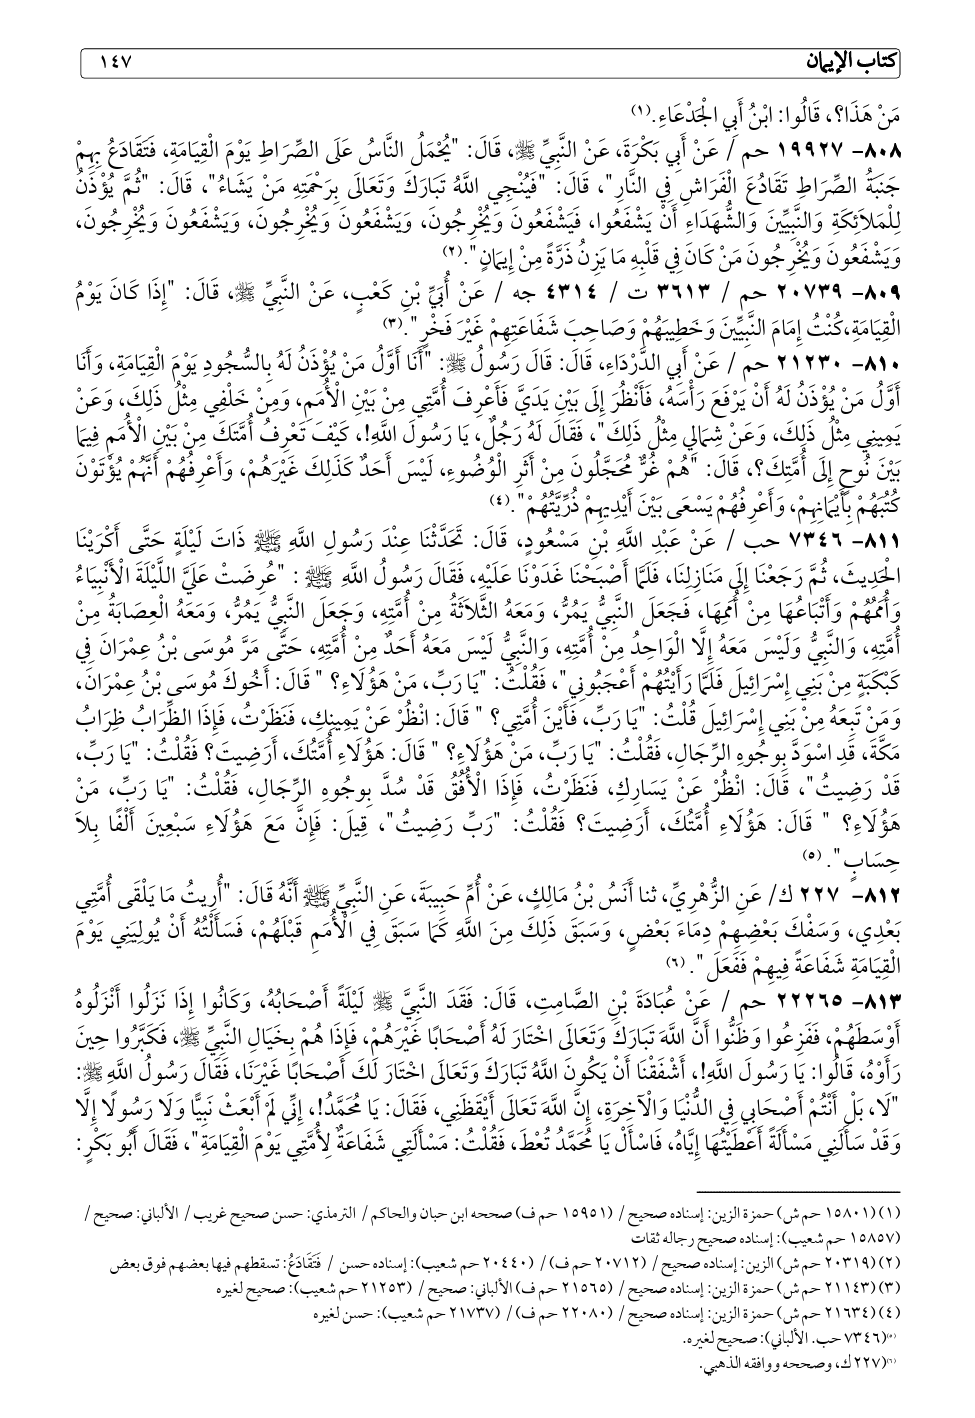 كتاب الإيمان ١٤٧
مَنْ هَذَا؟، قَالُوا: ابْنُ أَبِي الْجَدْعَاءِ.(١)
٨٠٨- ١٩٩٢٧ حم / عَنْ أَبِي بَكْرَةَ، عَنْ النَّبِيِّ ﷺ، قَالَ: "يُحْمَلُ النَّاسُ عَلَى الصِّرَاطِ يَوْمَ الْقِيَامَةِ، فَتَقَادَعُ بِهِمْ
جَنَبَةُ الصِّرَاطِ تَقَادُعَ الْفَرَاشِ فِي النَّارِ"، قَالَ: "فَيُنْجِي اللَّهُ تَبَارَكَ وَتَعَالَى بِرَحْمَتِهِ مَنْ يَشَاءُ"، قَالَ: "ثُمَّ يُؤْذَنُ
لِلْمَلَائِكَةِ وَالنَّبِيِّينَ وَالشُّهَدَاءِ أَنْ يَشْفَعُوا، فَيَشْفَعُونَ وَيُخْرِجُونَ، وَيَشْفَعُونَ وَيُخْرِجُونَ، وَيَشْفَعُونَ وَيُخْرِجُونَ،
وَيَشْفَعُونَ وَيُخْرِجُونَ مَنْ كَانَ فِي قَلْبِهِ مَا يَزِنُ ذَرَّةً مِنْ إِيمَانٍ".(٢)
٨٠٩- ٢٠٧٣٩ حم / ٣٦١٣ ت / ٤٣١٤ جه / عَنْ أُبَيِّ بْنِ كَعْبٍ، عَنْ النَّبِيِّ ﷺ، قَالَ: "إِذَا كَانَ يَوْمُ
الْقِيَامَةِ،كُنْتُ إِمَامَ النَّبِيِّينَ وَخَطِيبَهُمْ وَصَاحِبَ شَفَاعَتِهِمْ غَيْرَ فَخْرٍ".(٣)
٨١٠- ٢١٢٣٠ حم / عَنْ أَبِي الدَّرْدَاءِ، قَالَ: قَالَ رَسُولُ ﷺ: "أَنَا أَوَّلُ مَنْ يُؤْذَنُ لَهُ بِالسُّجُودِ يَوْمَ الْقِيَامَةِ، وَأَنَا
أَوَّلُ مَنْ يُؤْذَنُ لَهُ أَنْ يَرْفَعَ رَأْسَهُ، فَأَنْظُرَ إِلَى بَيْنِ يَدَيَّ فَأَعْرِفَ أُمَّتِي مِنْ بَيْنِ الْأُمَمِ، وَمِنْ خَلْفِي مِثْلُ ذَلِكَ، وَعَنْ
يَمِينِي مِثْلُ ذَلِكَ، وَعَنْ شِمَالِي مِثْلُ ذَلِكَ"، فَقَالَ لَهُ رَجُلٌ، يَا رَسُولَ اللَّهِ!، كَيْفَ تَعْرِفُ أُمَّتَكَ مِنْ بَيْنِ الْأُمَمِ فِيمَا
بَيْنَ نُوحٍ إِلَى أُمَّتِكَ؟، قَالَ: "هُمْ غُرٌّ مُحَجَّلُونَ مِنْ أَثَرِ الْوُضُوءِ، لَيْسَ أَحَدٌ كَذَلِكَ غَيْرَهُمْ، وَأَعْرِفُهُمْ أَنَّهُمْ يُؤْتَوْنَ
كُتُبَهُمْ بِأَيْمَانِهِمْ، وَأَعْرِفُهُمْ يَسْعَى بَيْنَ أَيْدِيهِمْ ذُرِّيَّتُهُمْ".(٤)
٨١١- ٧٣٤٦ حب / عَنْ عَبْدِ اللَّهِ بْنِ مَسْعُودٍ، قَالَ: تَحَدَّثْنَا عِنْدَ رَسُولِ اللَّهِ ﷺ ذَاتَ لَيْلَةٍ حَتَّى أَكْرَيْنَا
الْحَدِيثَ، ثُمَّ رَجَعْنَا إِلَى مَنَازِلِنَا، فَلَمَّا أَصْبَحْنَا غَدَوْنَا عَلَيْهِ، فَقَالَ رَسُولُ اللَّهِ ﷺ : "عُرِضَتْ عَلَيَّ اللَّيْلَةَ الْأَنْبِيَاءُ
وَأُمَمُهُمْ وَأَتْبَاعُهَا مِنْ أُمَمِهَا، فَجَعَلَ النَّبِيُّ يَمُرُّ، وَمَعَهُ الثَّلَاثَةُ مِنْ أُمَّتِهِ، وَجَعَلَ النَّبِيُّ يَمُرُّ، وَمَعَهُ الْعِصَابَةُ مِنْ
أُمَّتِهِ، وَالنَّبِيُّ وَلَيْسَ مَعَهُ إِلَّا الْوَاحِدُ مِنْ أُمَّتِهِ، وَالنَّبِيُّ لَيْسَ مَعَهُ أَحَدٌ مِنْ أُمَّتِهِ، حَتَّى مَرَّ مُوسَى بْنُ عِمْرَانَ فِي
كَبْكَبَةٍ مِنْ بَنِي إِسْرَائِيلَ فَلَمَّا رَأَيْتُهُمْ أَعْجَبُونِي"، فَقُلْتُ: "يَا رَبِّ، مَنْ هَؤُلَاءِ؟ " قَالَ: أَخُوكَ مُوسَى بْنُ عِمْرَانَ،
وَمَنْ تَبِعَهُ مِنْ بَنِي إِسْرَائِيلَ قُلْتُ: "يَا رَبِّ، فَأَيْنَ أُمَّتِي؟ " قَالَ: انْظُرْ عَنْ يَمِينِكِ، فَنَظَرْتُ، فَإِذَا الظِّرَابُ ظِرَابُ
مَكَّةَ، قَدِ اسْوَدَّ بِوجُوهِ الرِّجَالِ، فَقُلْتُ: "يَا رَبِّ، مَنْ هَؤُلَاءِ؟ " قَالَ: هَؤُلَاءِ أُمَّتُكَ، أَرَضِيتَ؟ فَقُلْتُ: "يَا رَبِّ،
قَدْ رَضِيتُ"، قَالَ: انْظُرْ عَنْ يَسَارِكِ، فَنَظَرْتُ، فَإِذَا الْأُفُقُ قَدْ سُدَّ بِوجُوهِ الرِّجَالِ، فَقُلْتُ: "يَا رَبِّ، مَنْ
هَؤُلَاءِ؟ " قَالَ: هَؤُلَاءِ أُمَّتُكَ، أَرَضِيتَ؟ فَقُلْتُ: "رَبِّ رَضِيتُ"، قِيلَ: فَإِنَّ مَعَ هَؤُلَاءِ سَبْعِينَ أَلْفًا بِلاَ
حِسَابٍ". (٥)
٨١٢- ٢٢٧ ك/ عَنِ الزُّهْرِيِّ، ثنا أَنَسُ بْنُ مَالِكٍ، عَنْ أُمِّ حَبِيبَةَ، عَنِ النَّبِيِّ ﷺ أَنَّهُ قَالَ: "أُرِيتُ مَا يَلْقَى أُمَّتِي
بَعْدِي، وَسَفْكَ بَعْضِهِمْ دِمَاءَ بَعْضٍ، وَسَبَقَ ذَلِكَ مِنَ اللَّهِ كَمَا سَبَقَ فِي الْأُمَمِ قَبْلَهُمْ، فَسَأَلْتُهُ أَنْ يُولِيَنِي يَوْمَ
الْقِيَامَةِ شَفَاعَةً فِيهِمْ فَفَعَلَ". (٦)
٨١٣- ٢٢٢٦٥ حم / عَنْ عُبَادَةَ بْنِ الصَّامِتِ، قَالَ: فَقَدَ النَّبِيَّ ﷺ لَيْلَةً أَصْحَابُهُ، وَكَانُوا إِذَا نَزَلُوا أَنْزَلُوهُ
أَوْسَطَهُمْ، فَفَزِعُوا وَظَنُّوا أَنَّ اللَّهَ تَبَارَكَ وَتَعَالَى اخْتَارَ لَهُ أَصْحَابًا غَيْرَهُمْ، فَإِذَا هُمْ بِخَيَالِ النَّبِيِّ ﷺ، فَكَبَّرُوا حِينَ
رَأَوْهُ، قَالُوا: يَا رَسُولَ اللَّهِ!، أَشْفَقْنَا أَنْ يَكُونَ اللَّهُ تَبَارَكَ وَتَعَالَى اخْتَارَ لَكَ أَصْحَابًا غَيْرَنَا، فَقَالَ رَسُولُ اللَّهِ ﷺ:
"لَا، بَلْ أَنْتُمْ أَصْحَابِي فِي الدُّنْيَا وَالْآخِرَةِ، إِنَّ اللَّهَ تَعَالَى أَيْقَظَنِي، فَقَالَ: يَا مُحَمَّدُ!، إِنِّي لَمْ أَبْعَثْ نَبِيًّا وَلَا رَسُولًا إِلَّا
وَقَدْ سَأَلَنِي مَسْأَلَةً أَعْطَيْتُهَا إِيَّاهُ، فَاسْأَلْ يَا مُحَمَّدُ تُعْطَ، فَقُلْتُ: مَسْأَلَتِي شَفَاعَةٌ لِأُمَّتِي يَوْمَ الْقِيَامَةِ"، فَقَالَ أَبُو بَكْرٍ:
(١) (١٥٨٠١ حم ش) حمزة الزين: إسناده صحيح / (١٥٩٥١ حم ف) صححه ابن حبان والحاكم / الترمذي: حسن صحيح غريب / الألباني: صحيح /
(١٥٨٥٧ حم شعيب): إسناده صحيح رجاله ثقات
(٢) (٢٠٣١٩ حم ش) الزين: إسناده صحيح / (٢٠٧١٢ حم ف) / (٢٠٤٤٠ حم شعيب): إسناده حسن / فَتَقَادَعُ: تسقطهم فيها بعضهم فوق بعض
(٣) (٢١١٤٣ حم ش) حمزة الزين: إسناده صحيح / (٢١٥٦٥ حم ف) الألباني: صحيح / (٢١٢٥٣ حم شعيب): صحيح لغيره
(٤) (٢١٦٣٤ حم ش) حمزة الزين: إسناده صحيح / (٢٢٠٨٠ حم ف) / (٢١٧٣٧ حم شعيب): حسن لغيره
(٥)(٧٣٤٦ حب. الألباني): صحيح لغيره.
(٦)(٢٢٧ ك، وصححه ووافقه الذهبي.